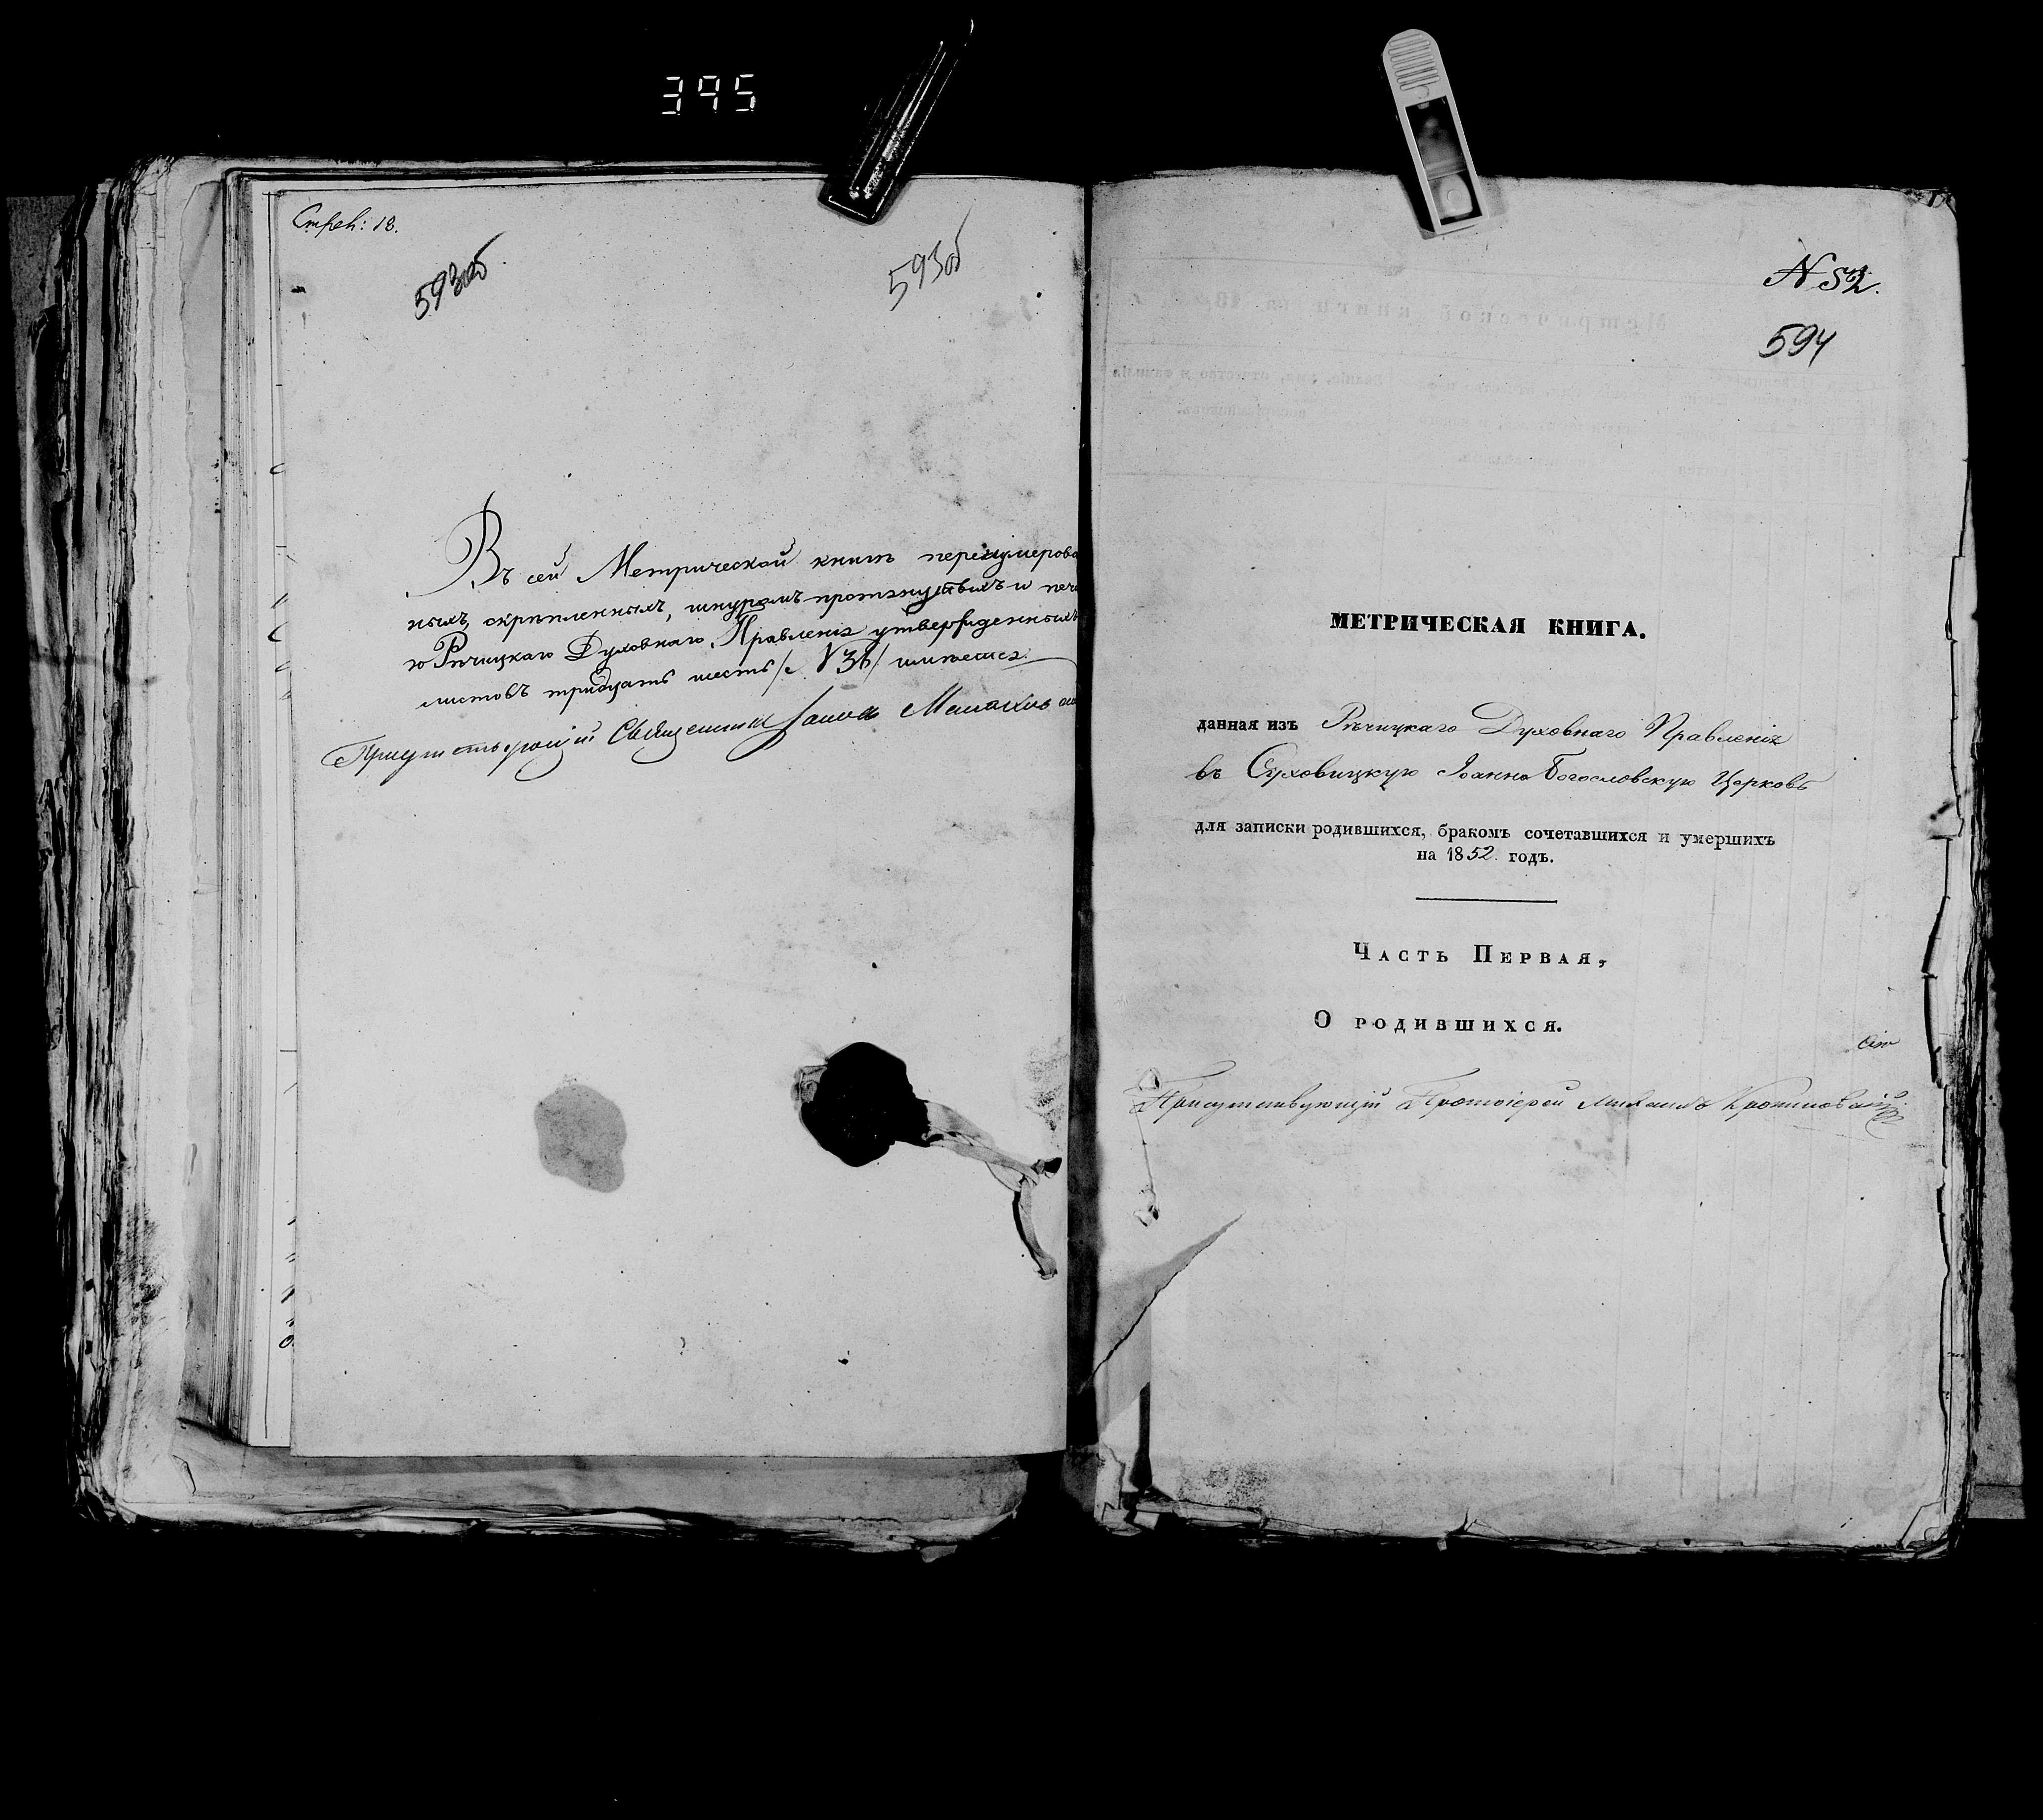 395
593об
593об
Въ сей Метрической книгѣ перенумерова
ныхъ, скрѣпленныхъ, шнуромъ протянутыхъ и печа
ю Рѣчицкаго Духовнаго Правленія утвержденныхъ
листовъ тридцать шесть /36/ имѣется.
Присутствующій Священникъ
N 52.
594
МЕТРИЧЕСКАЯ КНИГА.
данная изъ Рѣчицкаго Духовнаго Правленія
въ Суховицкую Іоанно Богословскую Церковь
для записки родившихся, бракомъ сочетавшихся и умершихъ
на 1852 годъ.
Часть Первая,
О родившихся.
Присутствующій Протоіерей Михаилъ